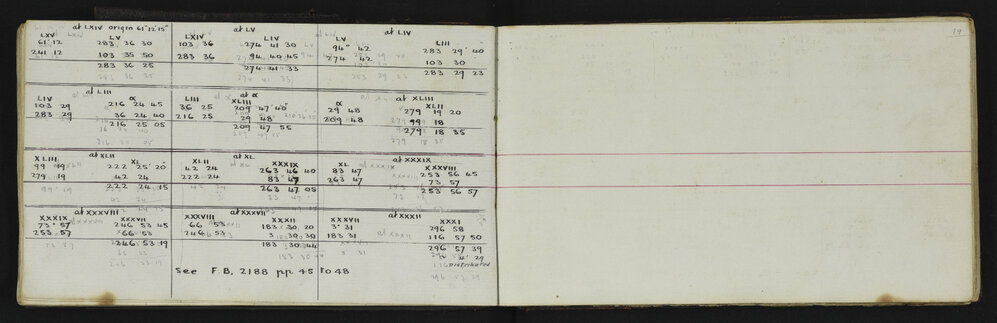 at LXIV origin 61° 12' 15" at LV at LIV
LXV LV LXIV LIV LV LIII
61° 12 283 36 30 103 36 274 41 30 94° 42 283 29' 40
241 12 103 35 50 283 36 94 40 45 274 42 103 30
283 36 25 274 41 33 283 29 23
at LIII at α at XLIII
LIV α LIII XLIII α XLII
103 29 216 24 45 36 25 209 47 40" 29 48 279 19 20
283 29 36 24 40 216 25 29 48 209 48 99 18
216 25 05 209 47 55 279 18 35
at XLII at XL at XXXIX
XLIII XL XLII XXXIX XL XXXVIII
99 19 222 25' 20" 42 24 263 46 40 83 47 253 56 45
279 19 42 24 222 24 83 47 263 47 73 57
222 24 15 263 47 05 253 56 57
at XXXVIII at XXXVII at XXXII
XXXIX XXXVII XXXVIII XXXII XXXI
73° 57 246 53 45 66 53 183 30 20 3° 31 296 58
253 57 66 53 246 53 3 30 30 183 31 116 57 50
246 53 19 183 30 44 296 57 39
4' 29
Distributed
See F.B. 2188 pp 45 to 48
19